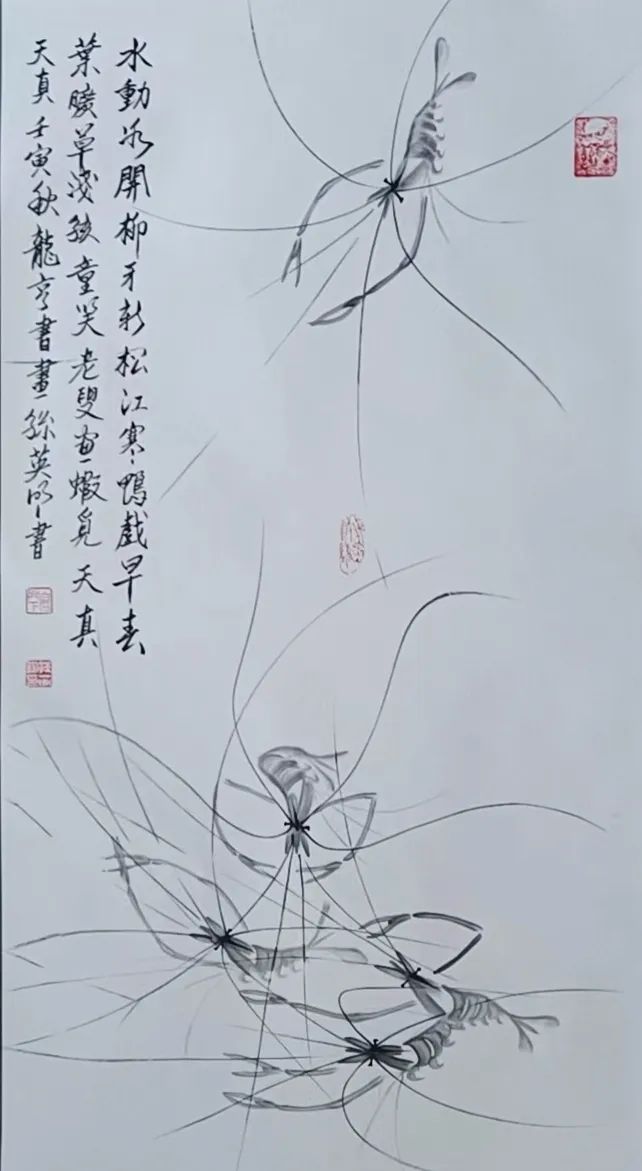 水動冰開柳牙新松江寒鴨戲早春
葉暖草淺孩童笑老叟畫蝦覓天真
天真壬寅秋龍亭書畫孫英明書